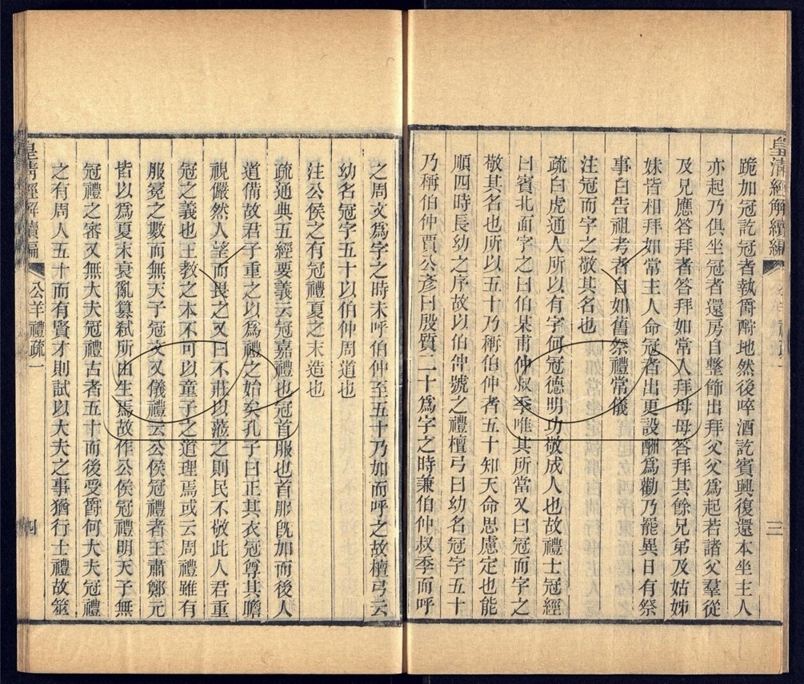 皇清經解續編
公羊禮疏一
三
跪加冠訖冠者執爵酹地然後啐酒訖賓興復還本坐主人
亦起乃俱坐冠者還房自整飾出拜父父爲起若諸父羣從
及兄應答拜者答拜如常人拜母母答拜其餘兄弟及姑姊
妹皆相拜如常主人命冠者出更設酬爲勸乃罷異日有祭
事白告祖考者自如舊祭禮常儀
注冠而字之敬其名也
疏白虎通人所以有字何冠德明功敬成人也故禮士冠經
曰賓北面字之曰伯某甫仲叔季唯其所當又曰冠而字之
敬其名也所以五十乃稱伯仲者五十知天命思慮定也能
順四時長幼之序故以伯仲號之禮檀弓曰幼名冠字五十
乃稱伯仲賈公彥曰殷質二十爲字之時兼伯仲叔季而呼
之周文爲字之時未呼伯仲至五十乃加而呼之故檀弓云
幼名冠字五十以伯仲周道也
注公侯之有冠禮夏之末造也
疏通典五經要義云冠嘉禮也冠首服也首服旣加而後人
道備故君子重之以爲禮之始矣孔子曰正其衣冠尊其瞻
視儼然人望而畏之又曰不莊以蒞之則民不敬此人君重
冠之義也王敎之本不可以童子之道理焉或云周禮雖有
服冕之數而無天子冠文又儀禮云公侯冠禮者王肅鄭元
皆以爲夏末衰亂篡弒所由生焉故作公侯冠禮明天子無
冠禮之審又無大夫冠禮古者五十而後受爵何大夫冠禮
之有周人五十而有賢才則試以大夫之事猶行士禮故筮
皇清經解續編
公羊禮疏一
四